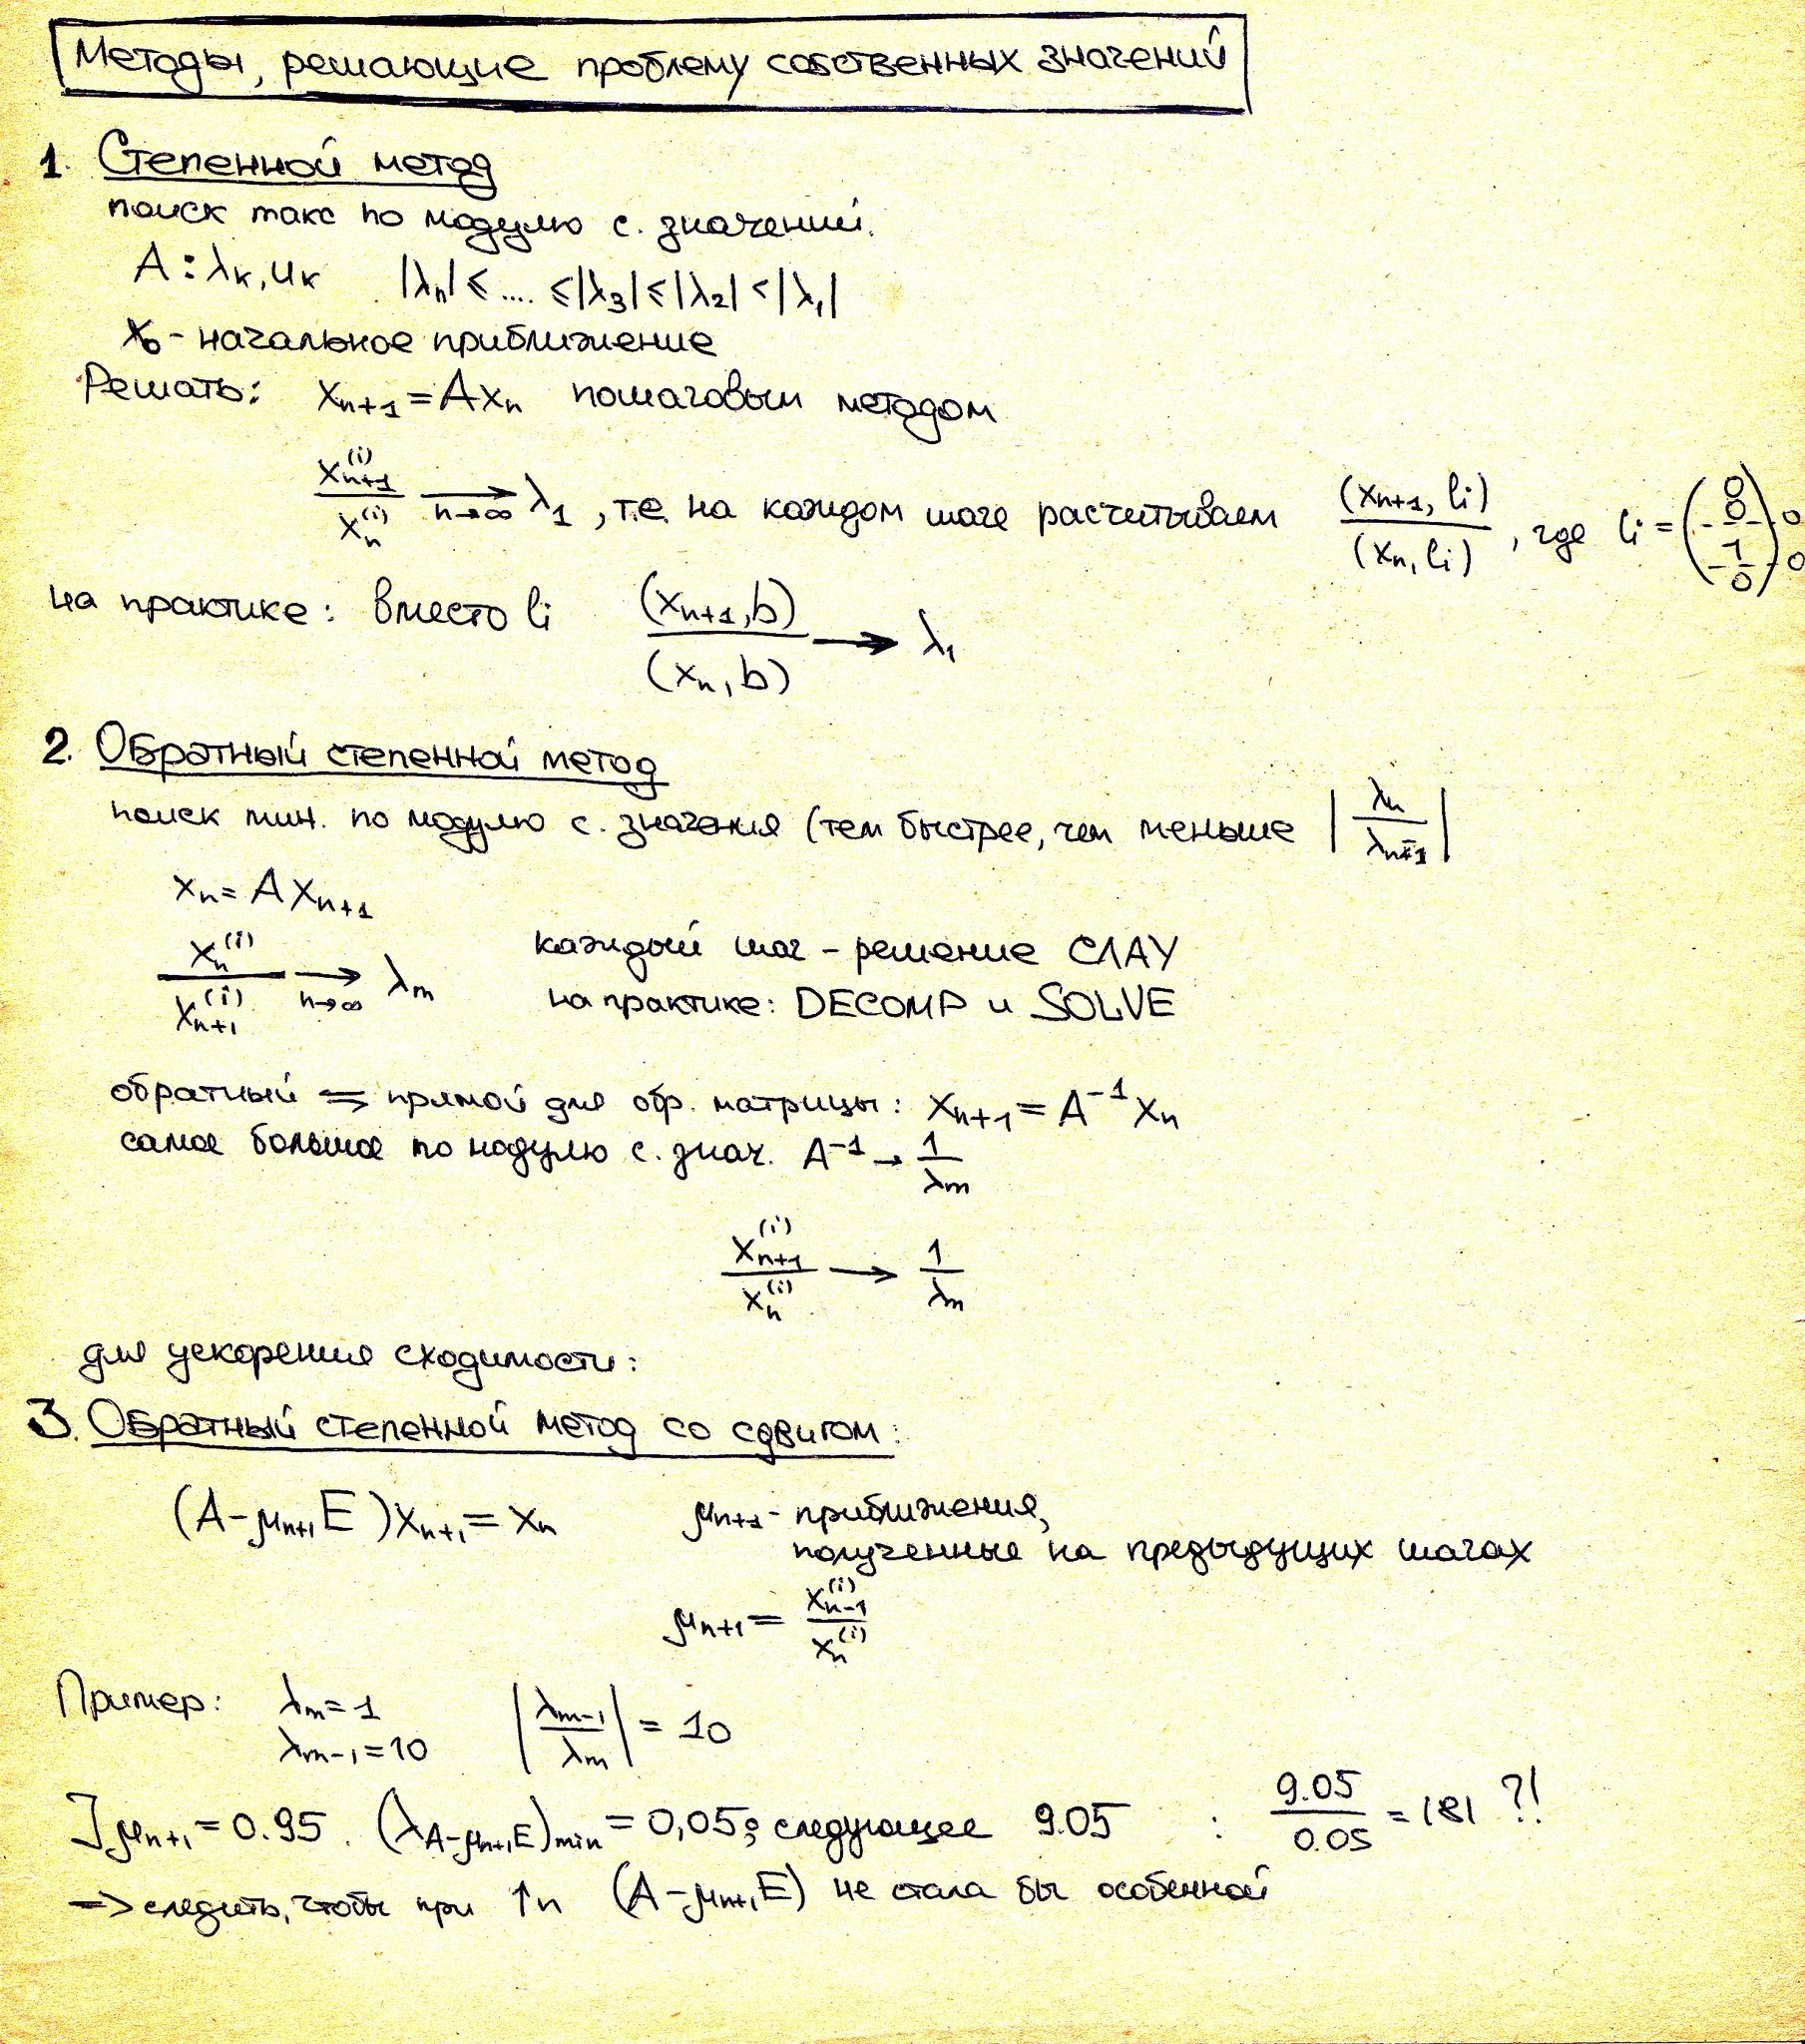 Методы, решающие проблему собственных значений
1. Степенной метод
поиск макс по модулю с. значений.
A : λₖ, uₖ |λₙ| ≤ .... ≤ |λ₃| ≤ |λ₂| < |λ₁|
x₀ - начальное приближение
Решать: xₙ₊₁ = Axₙ пошаговым методом
xₙ₊₁⁽ⁱ⁾ / xₙ⁽ⁱ⁾ →(n→∞) λ₁, т.е. на каждом шаге расчитываем (xₙ₊₁, li) / (xₙ, li), где li = (0 0 1 0)
на практике: вместо li (xₙ₊₁, b) / (xₙ, b) → λ₁
2. Обратный степенной метод
поиск мин. по модулю с. значения (тем быстрее, чем меньше |λₙ / λₙ₋₁|
xₙ = Axₙ₊₁
xₙ⁽ⁱ⁾ / xₙ₊₁⁽ⁱ⁾ →(n→∞) λₘ каждый шаг - решение СЛАУ
на практике: DECOMP и SOLVE
обратный ⇒ прямой для обр. матрицы: xₙ₊₁ = A⁻¹xₙ
самое большое по модулю с. знач. A⁻¹ → 1/λₘ
xₙ₊₁⁽ⁱ⁾ / xₙ⁽ⁱ⁾ → 1/λₘ
для ускорения сходимости:
3. Обратный степенной метод со сдвигом:
(A - μₙ₊₁E)xₙ₊₁ = xₙ μₙ₊₁ - приближения,
полученные на предыдущих шагах
μₙ₊₁ = xₙ₋₁⁽ⁱ⁾ / xₙ⁽ⁱ⁾
Пример: λₘ = 1 |λₘ₋₁ / λₘ| = 10
λₘ₋₁ = 10
] μₙ₊₁ = 0.95. (λ_{A-μₙ₊₁E})min = 0,05; следующее 9.05 : 9.05 / 0.05 = 181 ?!
=> следить, чтобы при ↑n (A - μₙ₊₁E) не стала бы особенной